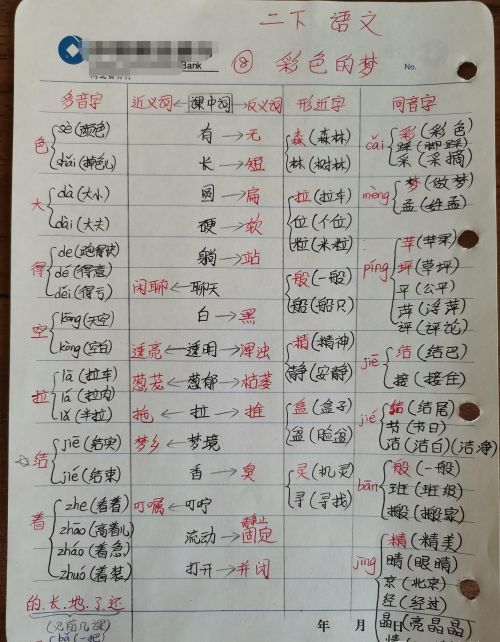 二下 语文
Bank
⑧ 彩色的梦
No.
多音字 近义词←课中词→反义词 形近字 同音字
色 sè(颜色)
shǎi(掉色儿)
大 dà(大小)
dài(大夫)
得 de(跑得快)
dé(得意)
děi(得亏)
空 kōng(天空)
kòng(空白)
拉 lā(拉车)
lá(拉肉)
lǎ(半拉)
结 jiē(结实)
jié(结束)
着 zhe(看着)
zhāo(高着儿)
zháo(着急)
zhuó(着装)
的、长、地、了、还
(见前几课)
bǎ(一把)
有→无
长→短
圆→扁
硬→软
躺→站
闲聊←聊天
白→黑
透亮←透明→浑浊
葱茏←葱郁→枯萎
拖←拉→推
梦乡←梦境
香→臭
叮嘱←叮咛
流动→静止
固定
打开→并闭
森(森林)
林(树林)
拉(拉车)
位(个位)
粒(米粒)
般(一般)
船(船只)
精(精神)
静(安静)
盒(盒子)
盆(脸盆)
灵(机灵)
寻(寻找)
cǎi 彩(彩色)
踩(脚踩)
采(采摘)
mèng 梦(做梦)
孟(姓孟)
píng 苹(苹果)
坪(草坪)
平(公平)
萍(浮萍)
评(评论)
jiē 结(结巴)
接(接住)
jié 结(结尾)
节(节日)
洁(洁白)(洁净)
bān 般(一般)
班(班级)
搬(搬家)
jīng 精(精美)
睛(眼睛)
京(北京)
经(经过)
晶(亮晶晶)
年 月 日